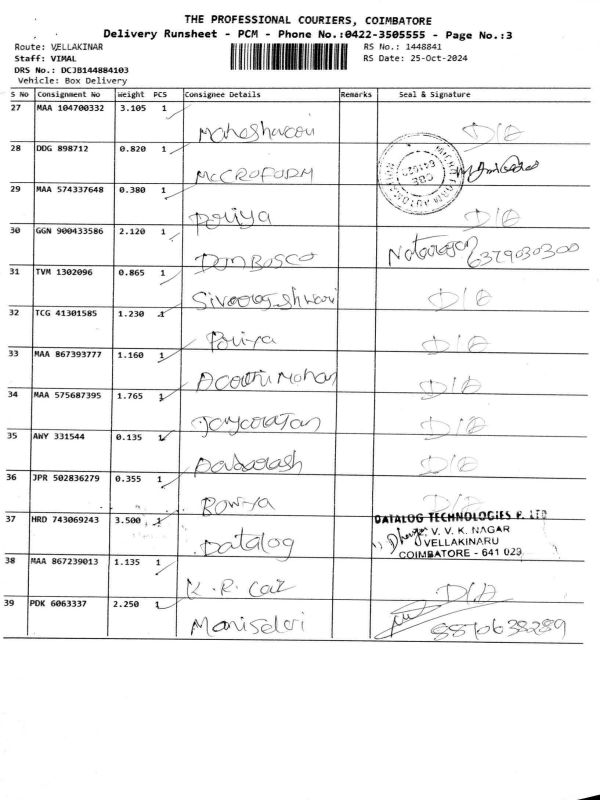 THE PROFESSIONAL COURIERS, COIMBATORE
Delivery Runsheet - PCM - Phone No.:0422-3505555 - Page No.:3
Route: VELLAKINAR RS No.: 1448841
Staff: VIMAL RS Date: 25-Oct-2024
DRS No.: DCJB144884103
Vehicle: Box Delivery
S No Consignment No Weight PCS Consignee Details Remarks Seal & Signature
27 MAA 104700332 3.105 1
Maheshwari D/A
28 DDG 898712 0.820 1
MCCROFORM
29 MAA 574337648 0.380 1
Priya D/A
30 GGN 900433586 2.120 1
DON BOSCO Natarajan 6379030300
31 TVM 1302096 0.865 1
D/A
32 TCG 41301585 1.230 1
Priya D/A
33 MAA 867393777 1.160 1
Mohan D/A
34 MAA 575687395 1.765 1
D/A
35 AWY 331544 0.135 1
D/A
36 JPR 502836279 0.355 1
Bowya D/A
37 HRD 743069243 3.500 1
Datalog
DATALOG TECHNOLOGIES P. LTD
V. V. K. NAGAR
VELLAKINARU
COIMBATORE - 641 029
38 MAA 867239013 1.135 1
K.R. Car D/A
39 PDK 6063337 2.250 1
8870638289